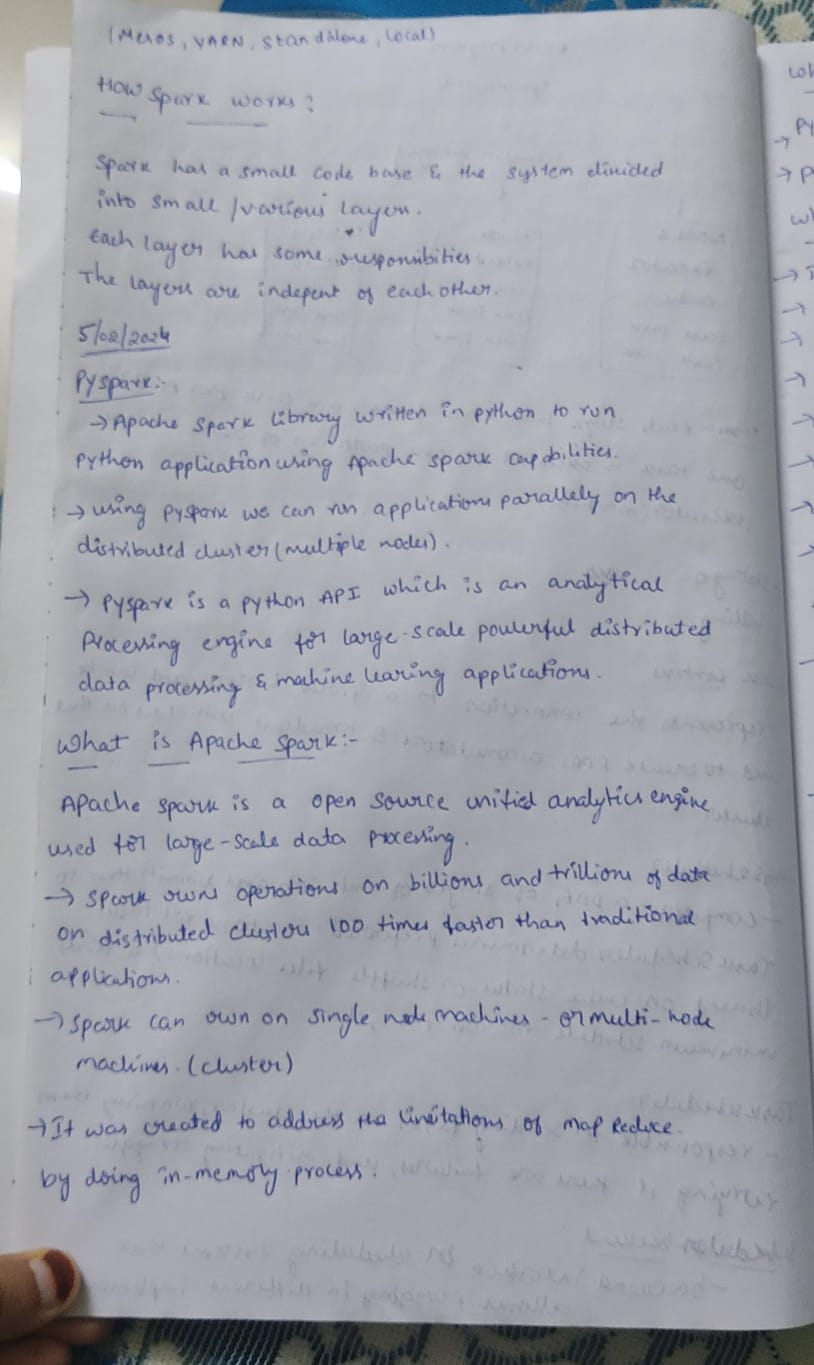 (Mesos, YARN, Standalone, Local)
How Spark works?
Spark has a small code base & the system divided
into small /various layers.
Each layer has some responsibities
The layers are indepent of each other.
5/02/2024
Pyspark:-
→ Apache Spark library written in python to run
Python application using Apache spark capabilities.
→ using pyspark we can run applications parallely on the
distributed cluster (multiple nodes).
→ Pyspark is a python API which is an analytical
Processing engine for large-scale powerful distributed
data processing & machine learing applications.
What is Apache Spark:-
Apache spark is a open source unified analytics engine
used for large-scale data processing.
→ Spark runs operations on billions and trillions of data
on distributed clusters 100 times faster than traditional
applications.
→ Spark can run on single node machines - or multi-node
machines. (cluster)
→ It was created to address the limitations of map Reduce.
by doing in-memory process.